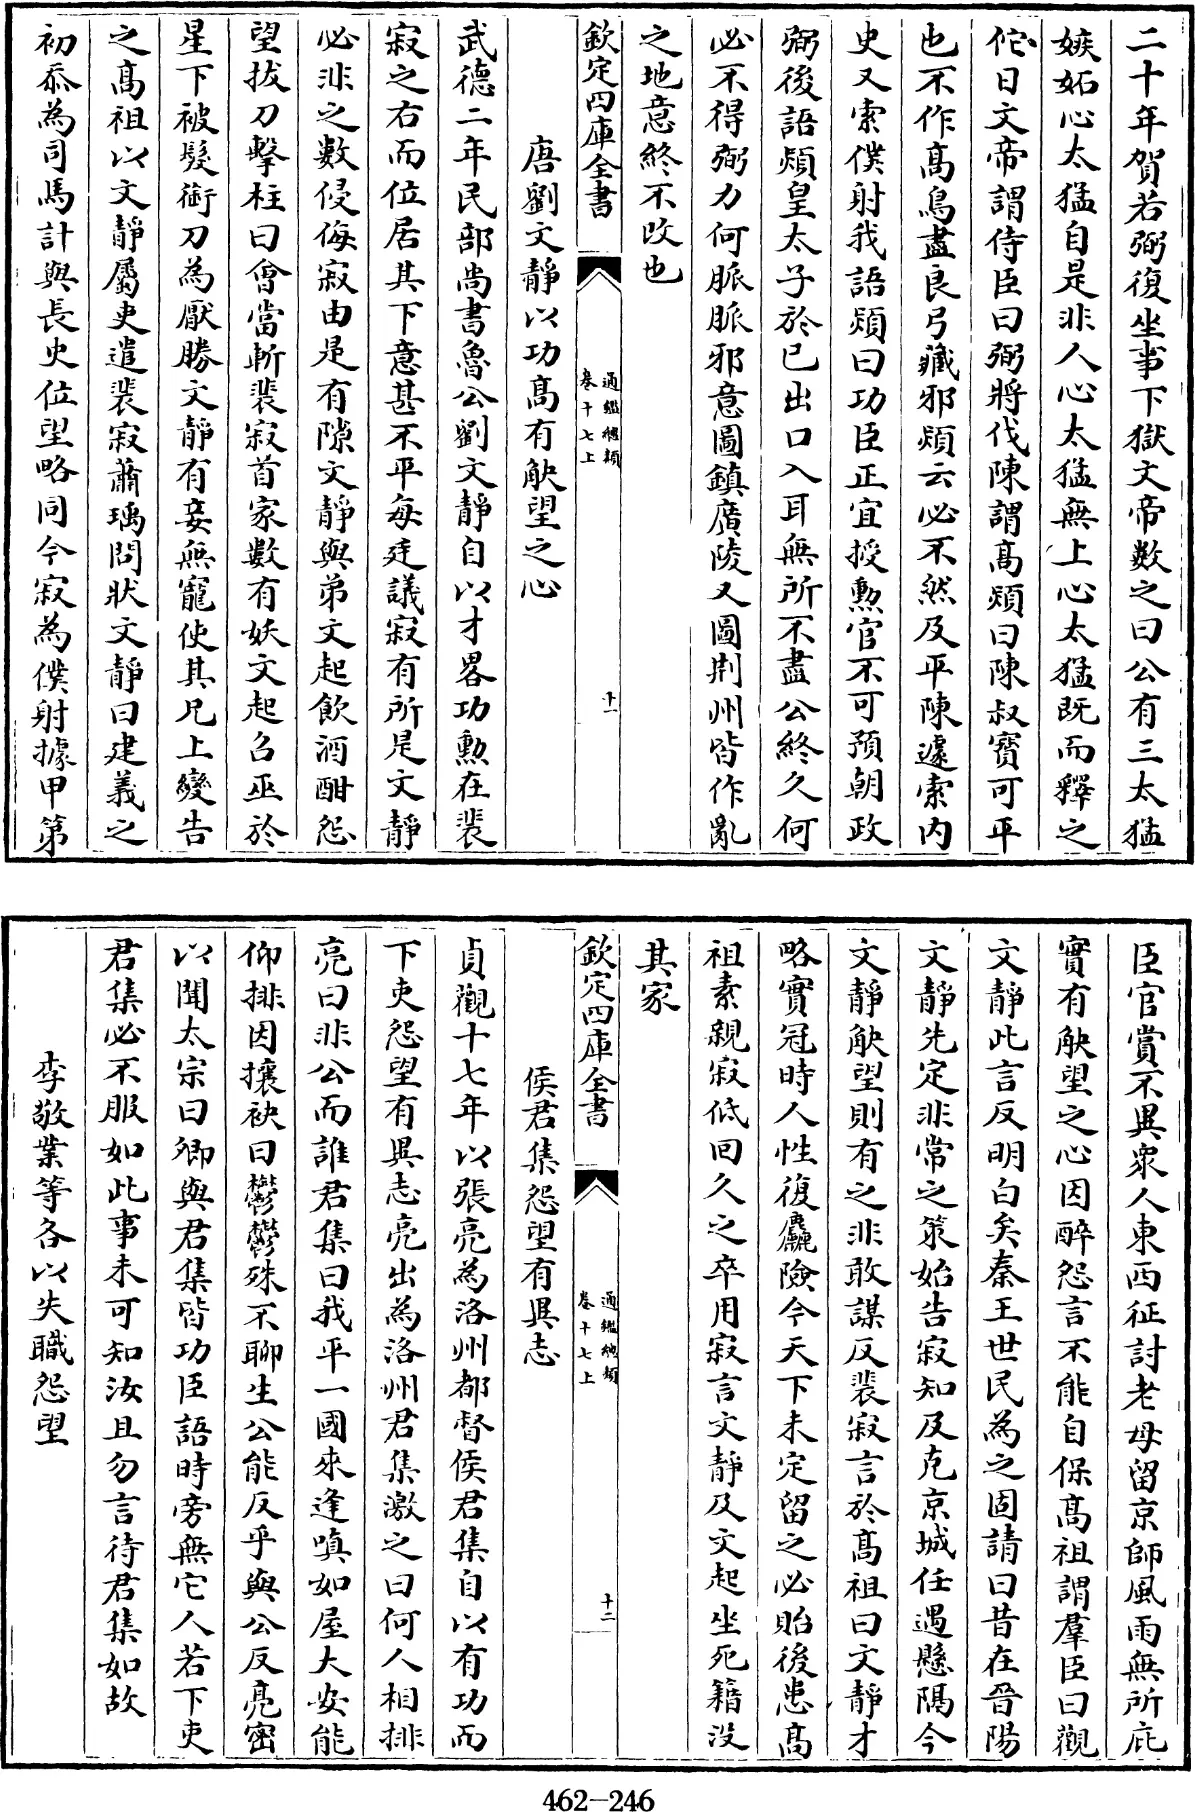 二十年賀若弼復坐事下獄文帝數之曰公有三太猛
嫉妬心太猛自是非人心太猛無上心太猛既而釋之
佗日文帝謂侍臣曰弼將伐陳謂髙熲曰陳叔寳可平
也不作髙鳥盡良弓藏邪熲云必不然及平陳遽索内
史又索僕射我語熲曰功臣正宜授勲官不可預朝政
弼後語熲皇太子於己出口入耳無所不盡公終久何
必不得弼力何脈脈邪意圖鎮廣陵又圖荆州皆作亂
之地意終不改也
欽定四庫全書
通鑑總類
卷十七上
十一
唐劉文靜以功髙有觖望之心
武徳二年民部尚書魯公劉文靜自以才畧功勲在裴
寂之右而位居其下意甚不平每廷議寂有所是文靜
必非之數侵侮寂由是有隙文靜與弟文起飲酒酣怨
望拔刀擊柱曰會當斬裴寂首家數有妖文起召巫於
星下被髮銜刀為厭勝文靜有妾無寵使其兄上變告
之髙祖以文靜屬吏遣裴寂蕭瑀問狀文靜曰建義之
初忝為司馬計與長史位望略同今寂為僕射據甲第
臣官賞不異衆人東西征討老母留京師風雨無所庇
實有觖望之心因醉怨言不能自保髙祖謂羣臣曰觀
文靜此言反明白矣秦王世民為之固請曰昔在晉陽
文靜先定非常之策始告寂知及克京城任遇懸隔今
文靜觖望則有之非敢謀反裴寂言於髙祖曰文靜才
略實冠時人性復麤險今天下未定留之必貽後患髙
祖素親寂低回久之卒用寂言文靜及文起坐死籍没
其家
欽定四庫全書
通鑑總類
卷十七上
十二
侯君集怨望有異志
貞觀十七年以張亮為洛州都督侯君集自以有功而
下吏怨望有異志亮出為洛州君集激之曰何人相排
亮曰非公而誰君集曰我平一國來逢嗔如屋大安能
仰排因攘袂曰鬱鬱殊不聊生公能反乎與公反亮密
以聞太宗曰卿與君集皆功臣語時旁無它人若下吏
君集必不服如此事未可知汝且勿言待君集如故
李敬業等各以失職怨望
462-246